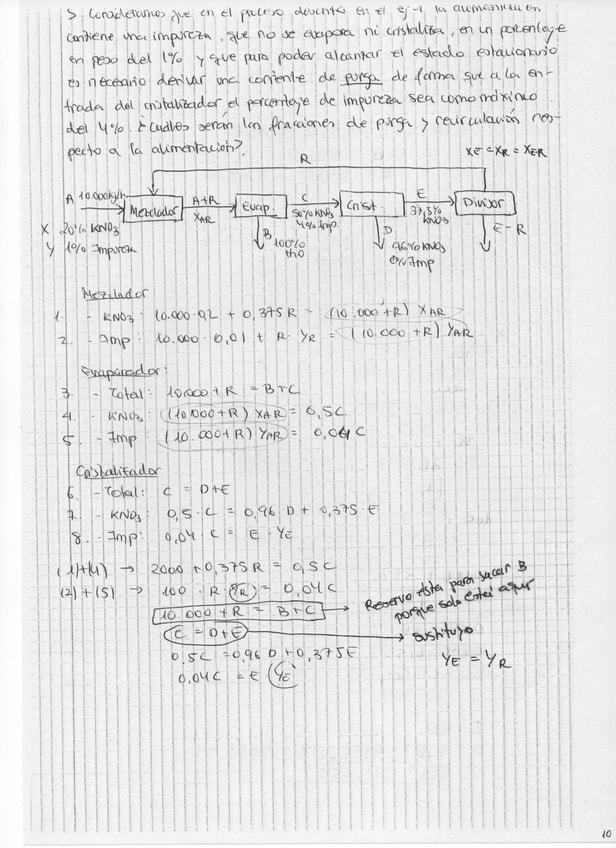 5. Consideramos que en el proceso descrito en el ej-1 la alimentación
contiene una impureza, que no se evapora ni cristaliza, en un porcentaje
en peso del 1% y que para poder alcanzar el estado estacionario
es necesario derivar una corriente de purga de forma que a la en-
trada del cristalizador el porcentaje de impureza sea como máximo
del 4%. ¿Cuáles serán las fracciones de purga y recirculación res-
pecto a la alimentación?
XE = XR = XE-R
R
A 10.000 kg/h
Mezclador
A+R
XAR
Evap.
C
50% KNO3
4% Imp.
Crist.
E
37,5%
KNO3
Divisor
X 20% KNO3
Y 1% Impureza
B
100%
H2O
D
96% KNO3
0% Imp
E-R
Mezclador
1. - KNO3: 10.000·0,2 + 0,375R = (10.000+R) XAR
2. - Imp: 10.000·0,01 + R·YR = (10.000+R) YAR
Evaporador:
3. - Total: 10.000 + R = B+C
4. - KNO3: (10.000+R) XAR = 0,5C
5. - Imp: (10.000+R) YAR = 0,04C
Cristalizador
6. - Total: C = D+E
7. - KNO3: 0,5·C = 0,96·D + 0,375·E
8. - Imp: 0,04·C = E·YE
(1)+(4) → 2000 + 0,375R = 0,5C
(2)+(5) → 100 · R YR = 0,04C
10.000 + R = B+C → Reservo ésta para sacar B
porque solo está aquí
C = D+E → sustituyo
0,5C = 0,96D + 0,375E
YE = YR
0,04C = E YE
10